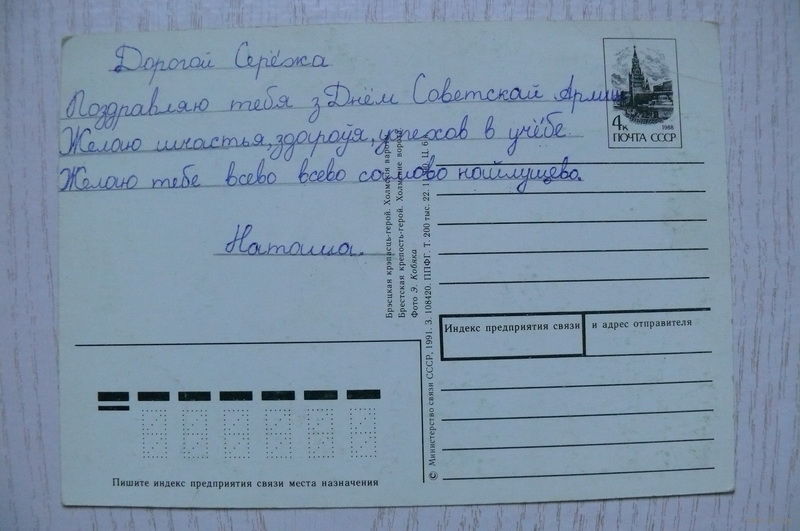 Дорогой Серёжа
Поздравляю тебя з Днём Советской Армии
Желаю шчастья, здороўя, успехов в учёбе
Желаю тебе всево всево самово найлущево.
Наташа.
4к
1988
ПОЧТА СССР
Брэсцкая крэпасць-герой. Холмскія варо
Брестская крепость-герой. Холмские ворота
Фото Э. Кобяка
© Министерство связи СССР, 1991. З. 108420. ППФГ. Т. 200 тыс. 22. 1
Индекс предприятия связи
и адрес отправителя
Пишите индекс предприятия связи места назначения